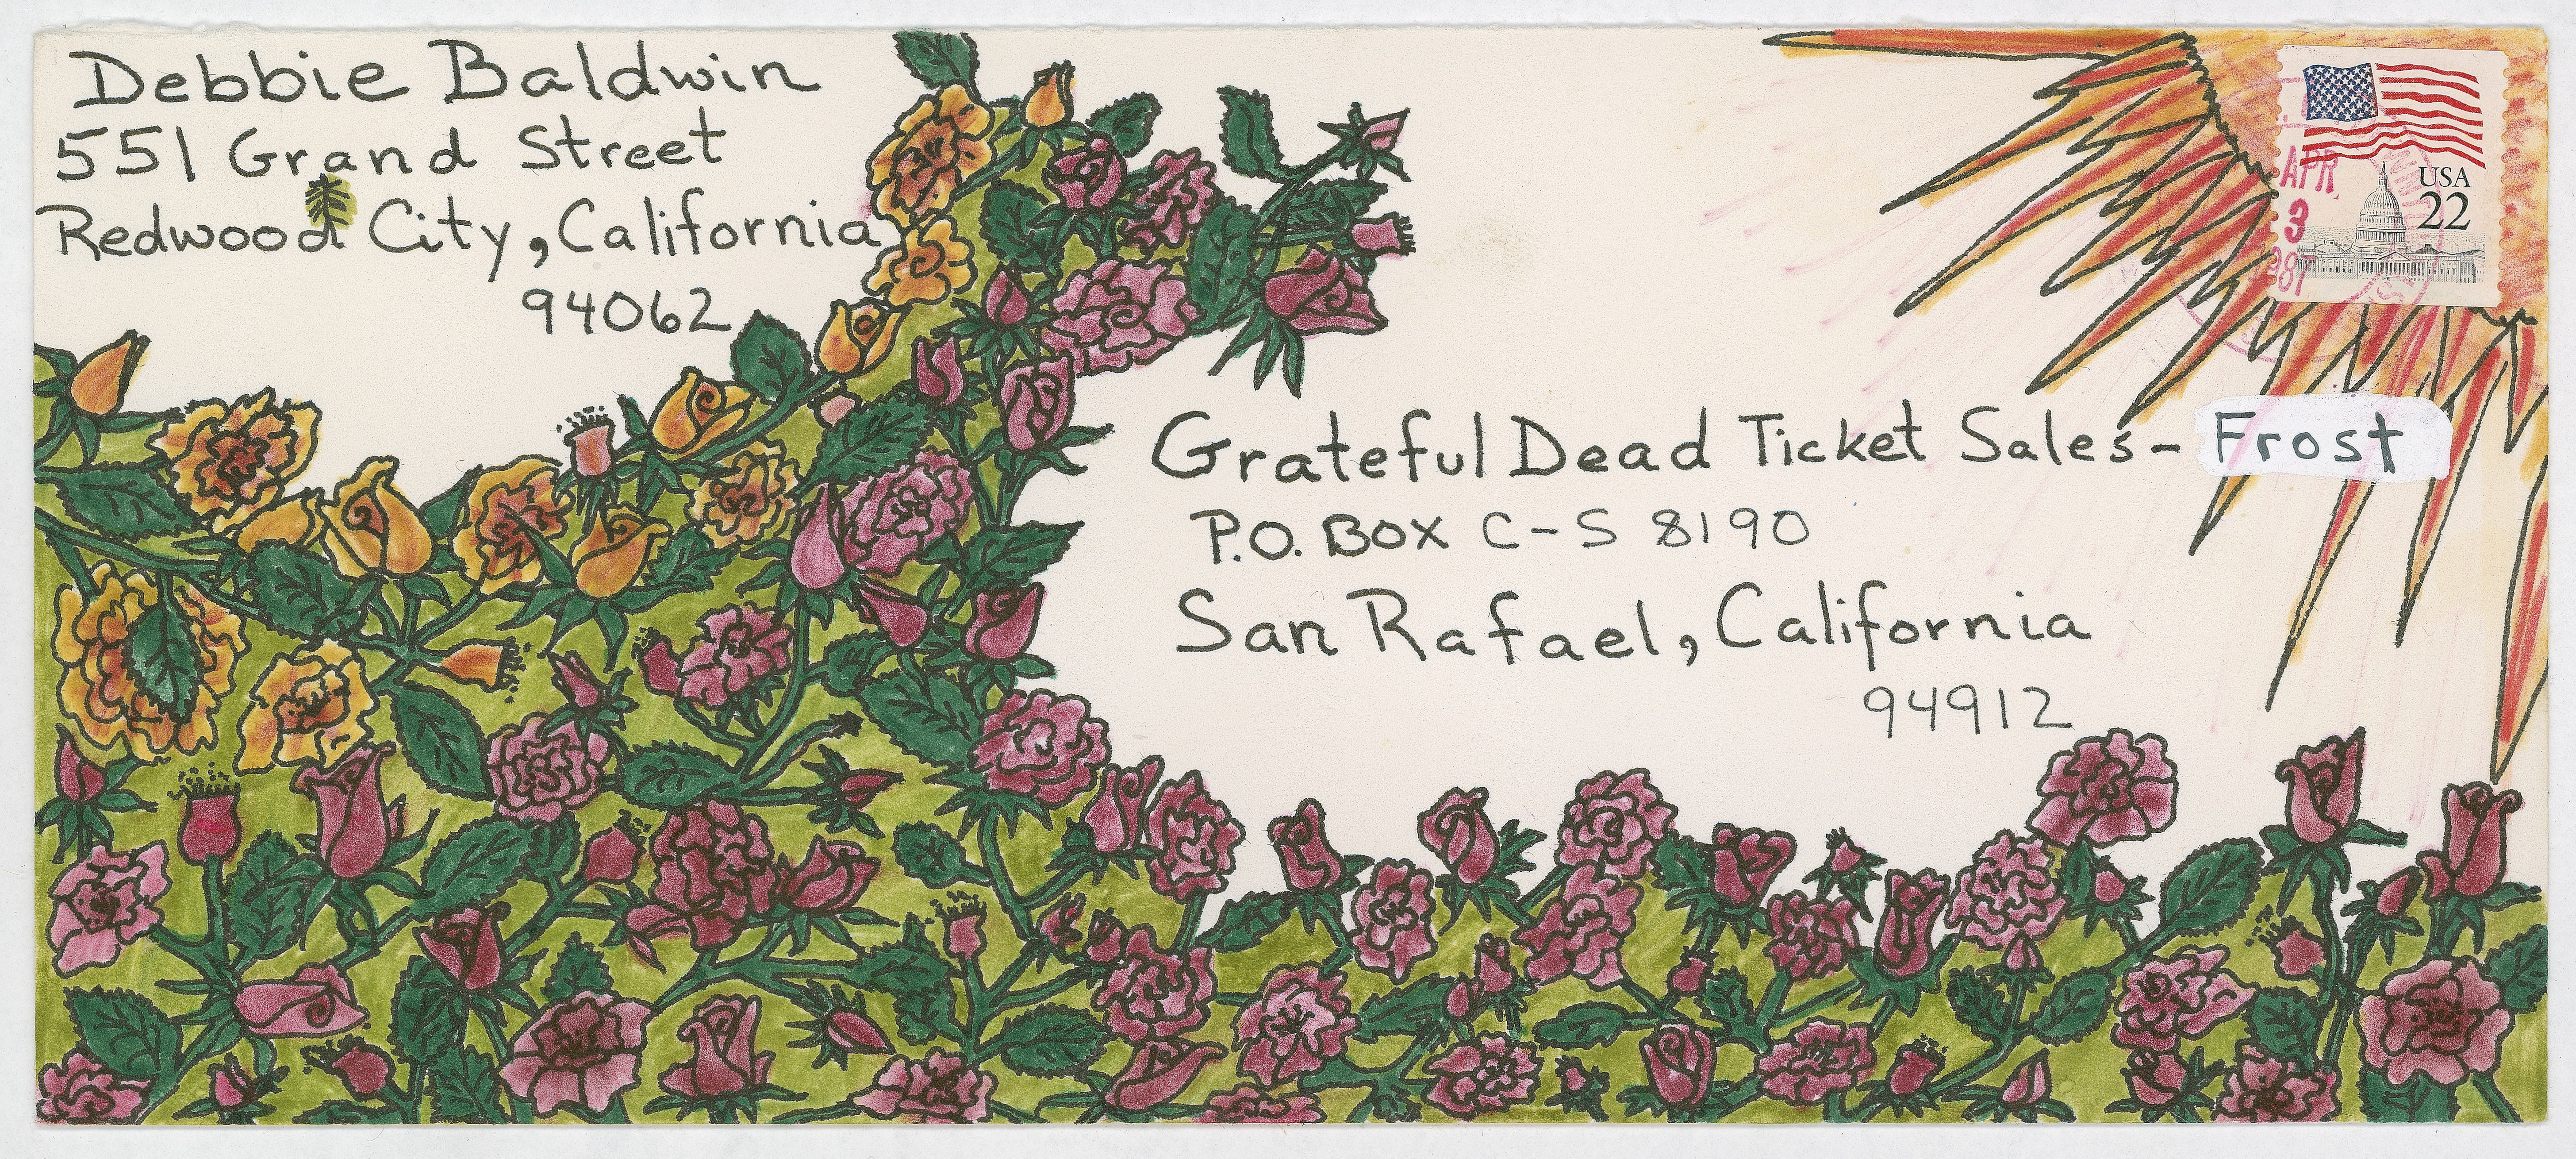 Debbie Baldwin
551 Grand Street
Redwood City, California
94062
USA
22
APR
3
1987
Grateful Dead Ticket Sales - Frost
P.O. BOX C-S 8190
San Rafael, California
94912